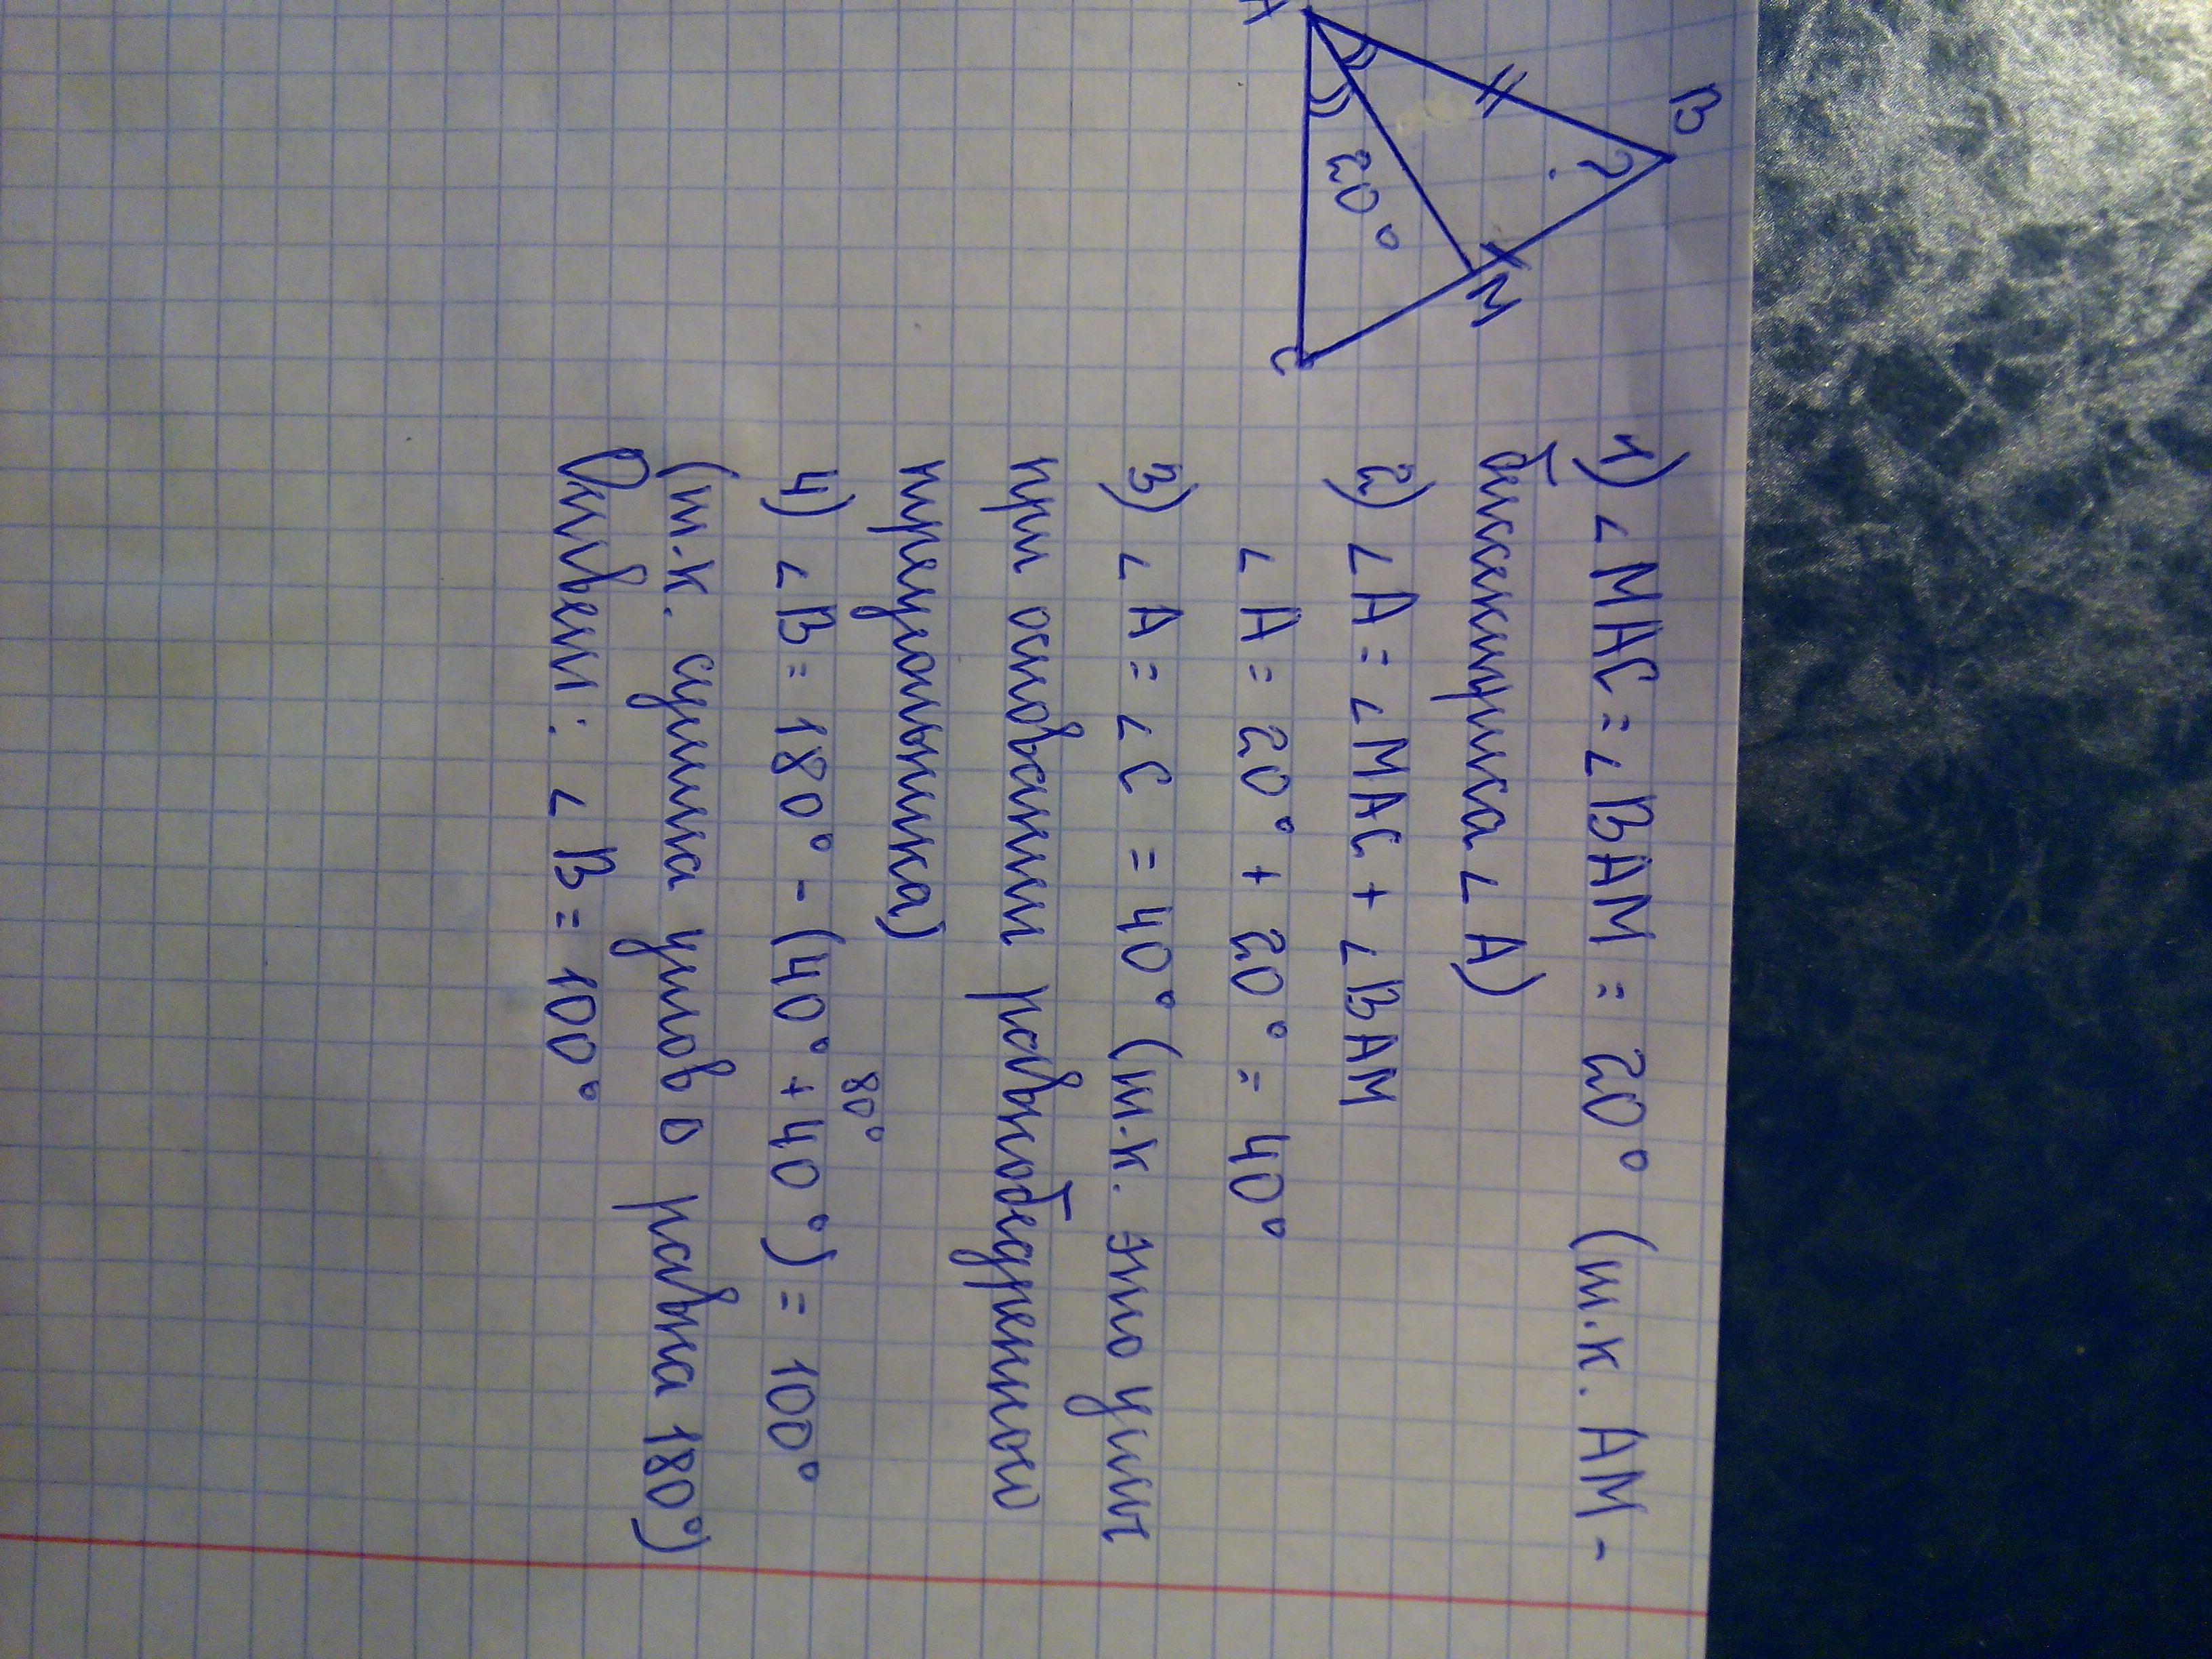 B
A
M
C
?
20°
1) ∠MAC = ∠BAM = 20° (т.к. AM -
биссектриса ∠A)
2) ∠A = ∠MAC + ∠BAM
∠A = 20° + 20° = 40°
3) ∠A = ∠C = 40° (т.к. это углы
при основании равнобедренного
треугольника)
80°
4) ∠B = 180° - (40° + 40°) = 100°
(т.к. сумма углов △ равна 180°)
Ответ: ∠B = 100°